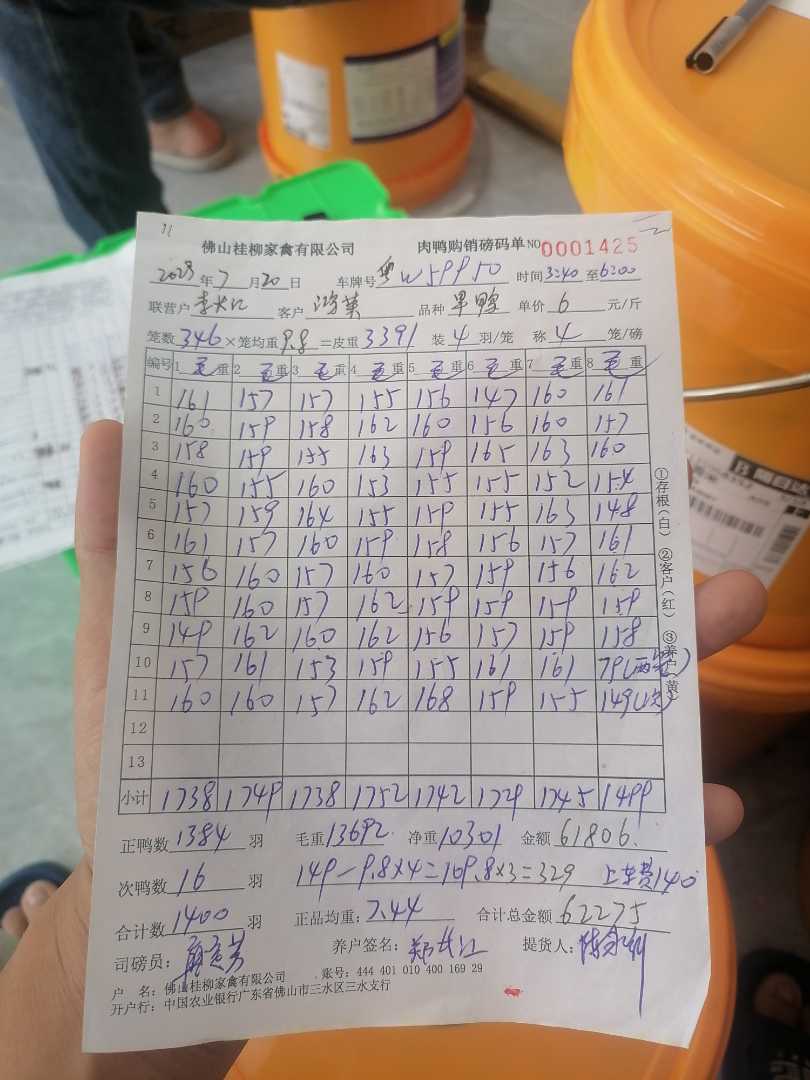 佛山桂柳家禽有限公司 肉鸭购销磅码单 NO 0001425
2023年7月20日 车牌号 粤W59950 时间3:40至6:00
联营户 客户 鸿英 品种 旱鸭 单价 6 元/斤
笼数346×笼均重9.8=皮重3391 装4羽/笼 称4笼/磅
编号 1毛重 2毛重 3毛重 4毛重 5毛重 6毛重 7毛重 8毛重
1 161 157 157 155 156 147 160 161
2 160 159 158 162 160 156 160 157
3 158 159 155 163 159 165 163 160
4 160 155 160 153 155 155 152 154
5 157 159 164 155 159 155 163 148
6 161 157 160 159 158 156 157 161
7 156 160 157 160 157 159 156 162
8 159 160 157 162 159 159 159 159
9 149 162 160 162 156 157 159 158
10 157 161 153 159 155 161 161 79(两笼)
11 160 160 157 162 168 159 155 149(次)
12
13
小计 1738 1749 1738 1752 1742 1729 1745 1499
正鸭数1384羽 毛重13692 净重10301 金额61806.
次鸭数16羽 149-9.8×4=109.8×3=329 上车费140
合计数1400羽 正品均重:7.44 合计总金额62275
司磅员: 养户签名:郑长江 提货人:
户 名:佛山桂柳家禽有限公司 账号:444 401 010 400 169 29
开户行:中国农业银行广东省佛山市三水区三水支行
①存根(白) ②客户(红) ③养户(黄)